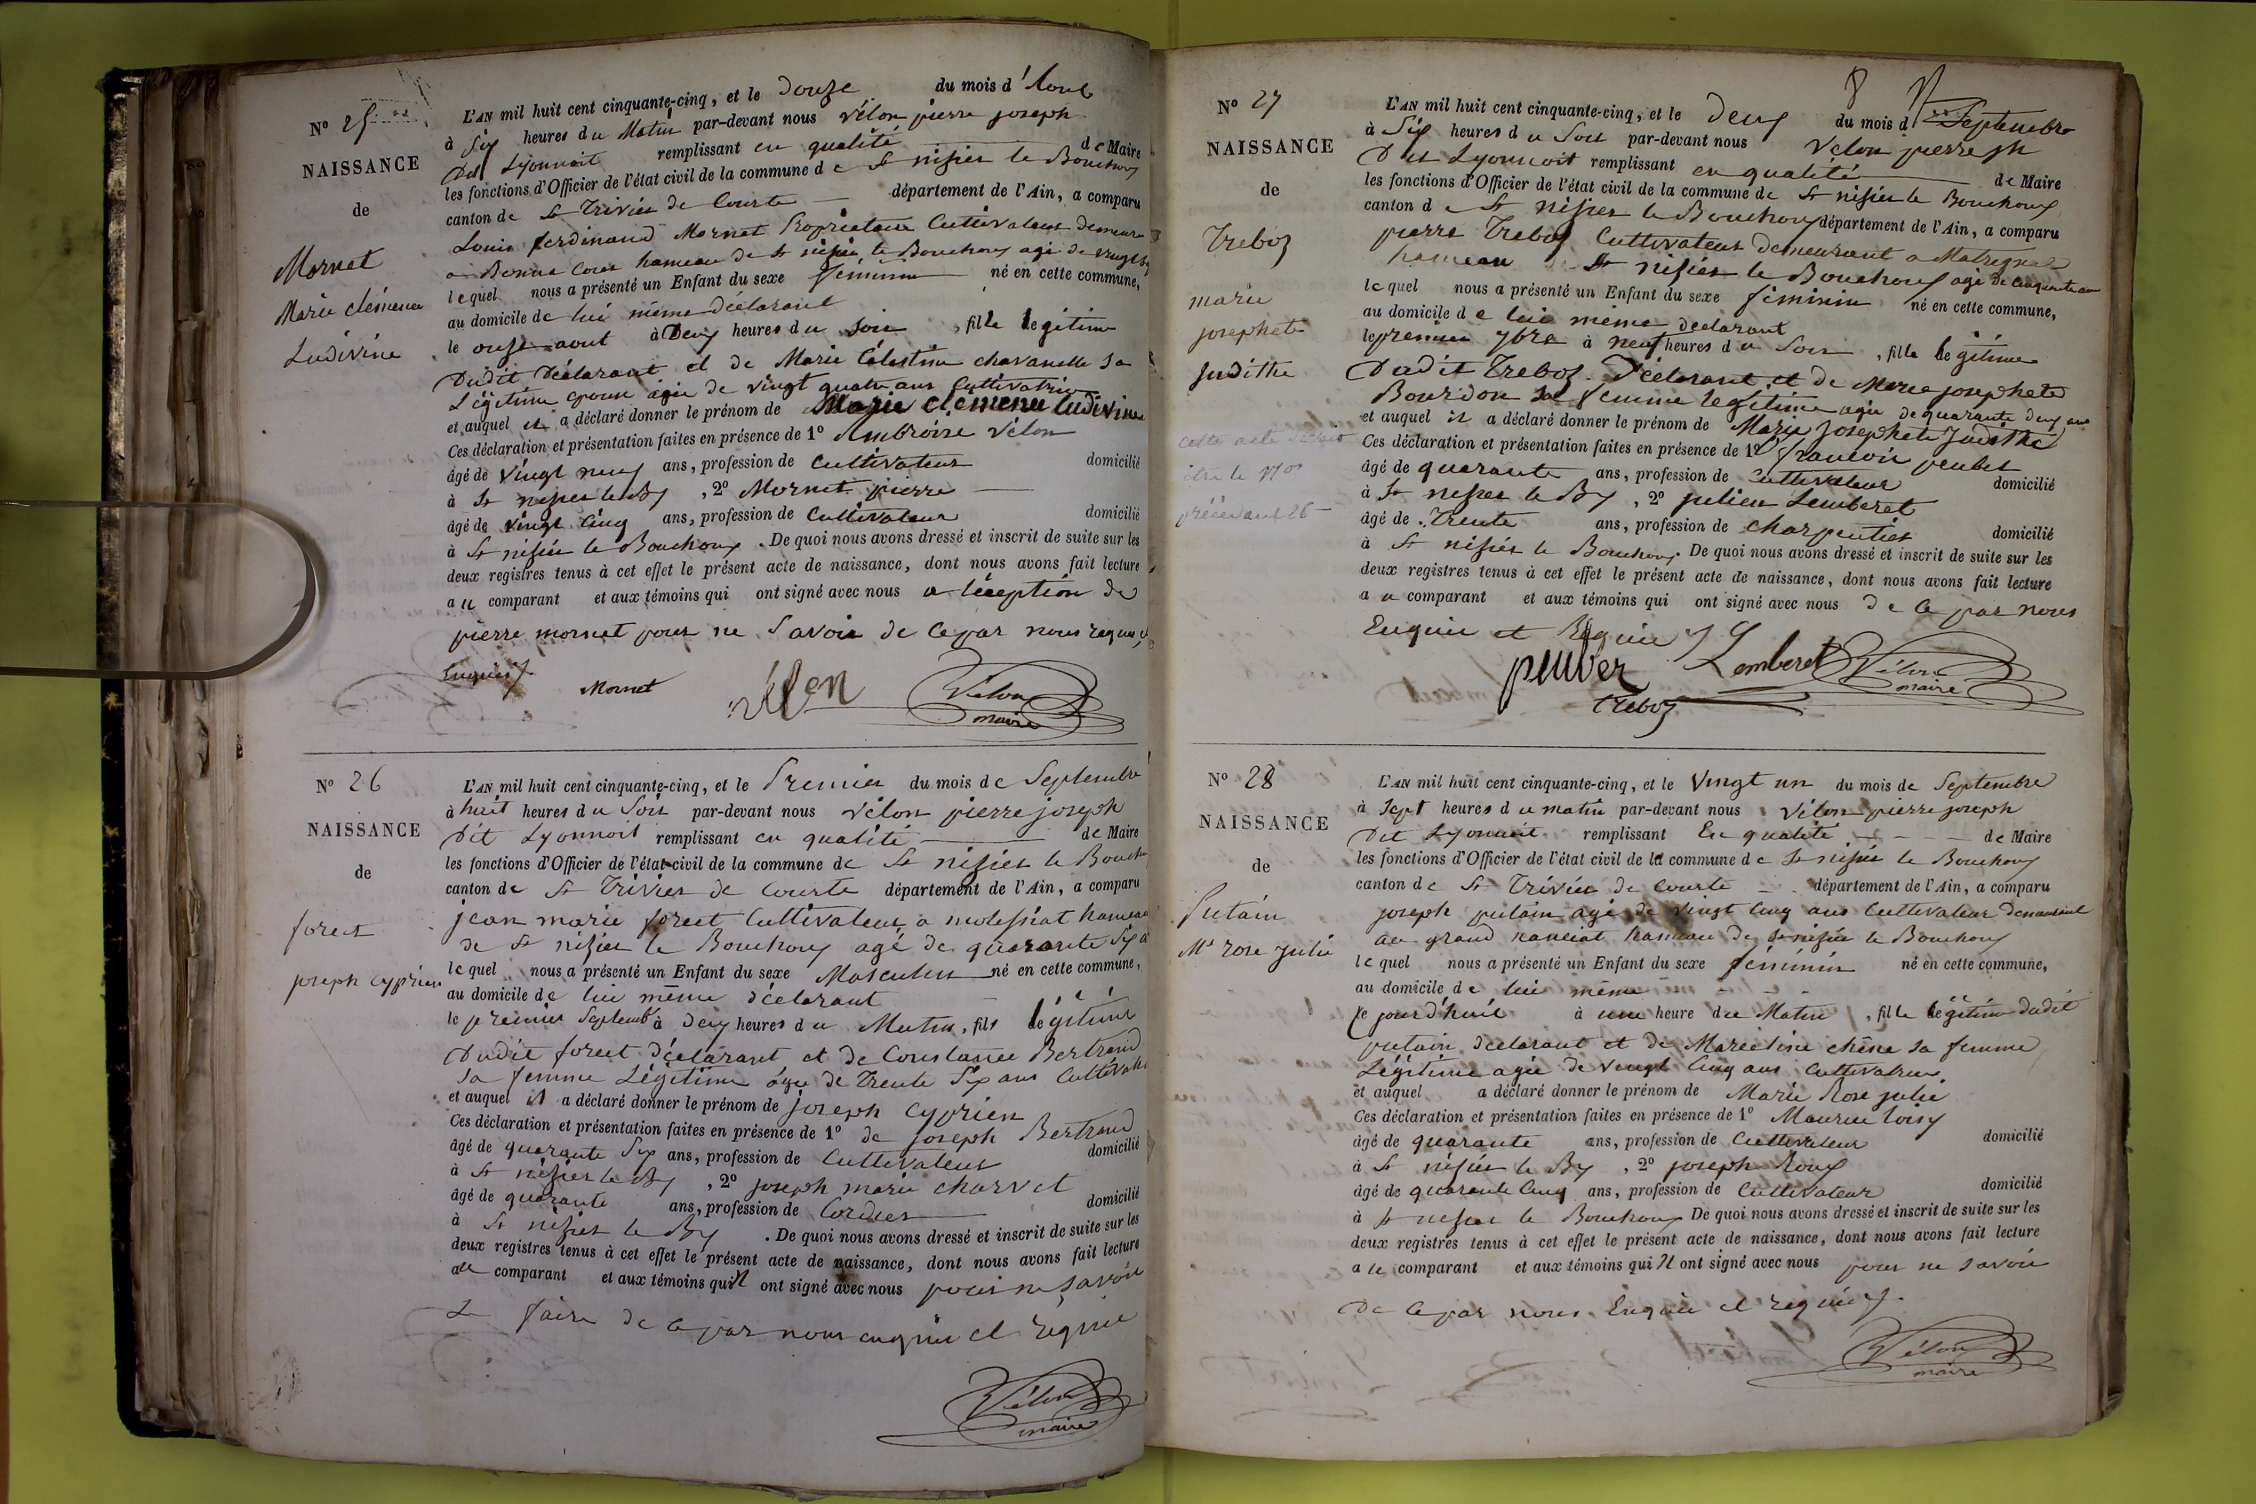 N° 25
NAISSANCE
de
Mornet
Marie clémence
Ludivine
L'AN mil huit cent cinquante-cinq, et le Douze du mois d'Aout
à Six heures du Matin par-devant nous Vélon pierre joseph
Dit Lyonnoit remplissant en qualité de Maire
les fonctions d'Officier de l'état civil de la commune de St nisier le Bouchoux
canton de St Trivier de Courte département de l'Ain, a comparu
Louis ferdinand Mornet Propriétaire Cultivateur demeurant
a Bonne Cour hameau de St nisier le Bouchoux agé de vingt
lequel nous a présenté un Enfant du sexe féminin né en cette commune,
au domicile de lui même déclarant
le onze aout à Deux heures du Soir, fille légitime
Dudit Déclarant et de Marie Célestine chavanelle Sa
Légitime epouse agée de vingt quatre ans Cultivatrice
et auquel il a déclaré donner le prénom de Marie clémence Ludivine
Ces déclaration et présentation faites en présence de 1° Ambroise Vélon
âgé de vingt neuf ans, profession de Cultivateur domicilié
à St nisier le Bx, 2° Mornet pierre
âgé de vingt Cinq ans, profession de Cultivateur domicilié
à St nisier le Bouchoux. De quoi nous avons dressé et inscrit de suite sur les
deux registres tenus à cet effet le présent acte de naissance, dont nous avons fait lecture
au comparant et aux témoins qui ont signé avec nous a léception de
pierre mornet pour ne Savoir de Ce par nous requis et
Enquis
Mornet vélon Vélon
maire
N° 26
NAISSANCE
de
foret
joseph Cyprien
L'AN mil huit cent cinquante-cinq, et le Premier du mois de Septembre
à huit heures du Soir par-devant nous Vélon pierre joseph
Dit Lyonnoit remplissant en qualité de Maire
les fonctions d'Officier de l'état civil de la commune de St nisier le Bouch
canton de St Trivier de Courte département de l'Ain, a comparu
jean marie foret Cultivateur a molessiat hameau
de St nisier le Bouchoux agé de quarante Six
lequel nous a présenté un Enfant du sexe Masculin né en cette commune,
au domicile de lui même déclarant
le premier Septemb à deux heures du Matin, fils légitime
Dudit foret déclarant et de Constance Bertrand
Sa femme Légitime agée de Trente Six ans Cultivatr
et auquel il a déclaré donner le prénom de joseph Cyprien
Ces déclaration et présentation faites en présence de 1° de joseph Bertrand
âgé de quarante Six ans, profession de Cultivateur domicilié
à St nisier le Bx, 2° joseph marie charvet
âgé de quarante ans, profession de Cordier domicilié
à St nisier le Bx. De quoi nous avons dressé et inscrit de suite sur les
deux registres tenus à cet effet le présent acte de naissance, dont nous avons fait lecture
au comparant et aux témoins qui N ont signé avec nous pour ne Savoir
Le faire de ce par nous enquis et requis
Vélon
maire
8
N° 27
NAISSANCE
de
Treboz
marie
josephete
Judithe
cette acte devoit
être le N°
précédent 26
L'AN mil huit cent cinquante-cinq, et le Deux du mois d Septembre
à Six heures du Soir par-devant nous Velon pierre jh
Dit Lyonnoit remplissant en qualité de Maire
les fonctions d'Officier de l'état civil de la commune de St nisier le Bouchoux
canton de St nisier le Bouchoux département de l'Ain, a comparu
pierre Treboz Cultivateur demeurant a
hameau de St nisier le Bouchoux agé de Cinquante ans
lequel nous a présenté un Enfant du sexe féminin né en cette commune,
au domicile de lui même déclarant
le premier 7bre à neuf heures du Soir, fille légitime
Dudit Treboz Déclarant et de Marie josephete
Bourdon Sa femme legitime agée de quarante deux ans
et auquel il a déclaré donner le prénom de Marie josephete Judithe
Ces déclaration et présentation faites en présence de 1° francois peubet
âgé de quarante ans, profession de Cultivateur domicilié
à St nisier le Bx, 2° julien Lemberet
âgé de Trente ans, profession de charpentier domicilié
à St nisier le Bouchoux. De quoi nous avons dressé et inscrit de suite sur les
deux registres tenus à cet effet le présent acte de naissance, dont nous avons fait lecture
au comparant et aux témoins qui ont signé avec nous de ce par nous
Enquis et Requis
Lemberet Vélon
maire
treboz
N° 28
NAISSANCE
de
Putain
Me rose Julie
L'AN mil huit cent cinquante-cinq, et le Vingt un du mois de Septembre
à Sept heures du matin par-devant nous Vélon pierre joseph
Dit Lyonnoit remplissant En qualité de Maire
les fonctions d'Officier de l'état civil de la commune de St nisier le Bouchoux
canton de St Trivier de Courte département de l'Ain, a comparu
joseph putain agé de vingt Cinq ans Cultivateur demeurant
au grand nanciat hameau de St nisier le Bouchoux
lequel nous a présenté un Enfant du sexe féminin né en cette commune,
au domicile de lui même
le jourd'huie à une heure du Matin, fille légitime dudit
putain declarant et de Marieline chêne Sa femme
Légitime agée de vingt Cinq ans Cultivatrice
et auquel a déclaré donner le prénom de Marie Rose julie
Ces déclaration et présentation faites en présence de 1° Maurice Loisy
âgé de quarante ans, profession de Cultivateur domicilié
à St nisier le Bx, 2° joseph Roux
âgé de quarante Cinq ans, profession de Cultivateur domicilié
à St nisier le Bouchoux De quoi nous avons dressé et inscrit de suite sur les
deux registres tenus à cet effet le présent acte de naissance, dont nous avons fait lecture
au comparant et aux témoins qui N ont signé avec nous pour ne savoir
De Ce par nous Enquis et requis
Vélon
maire